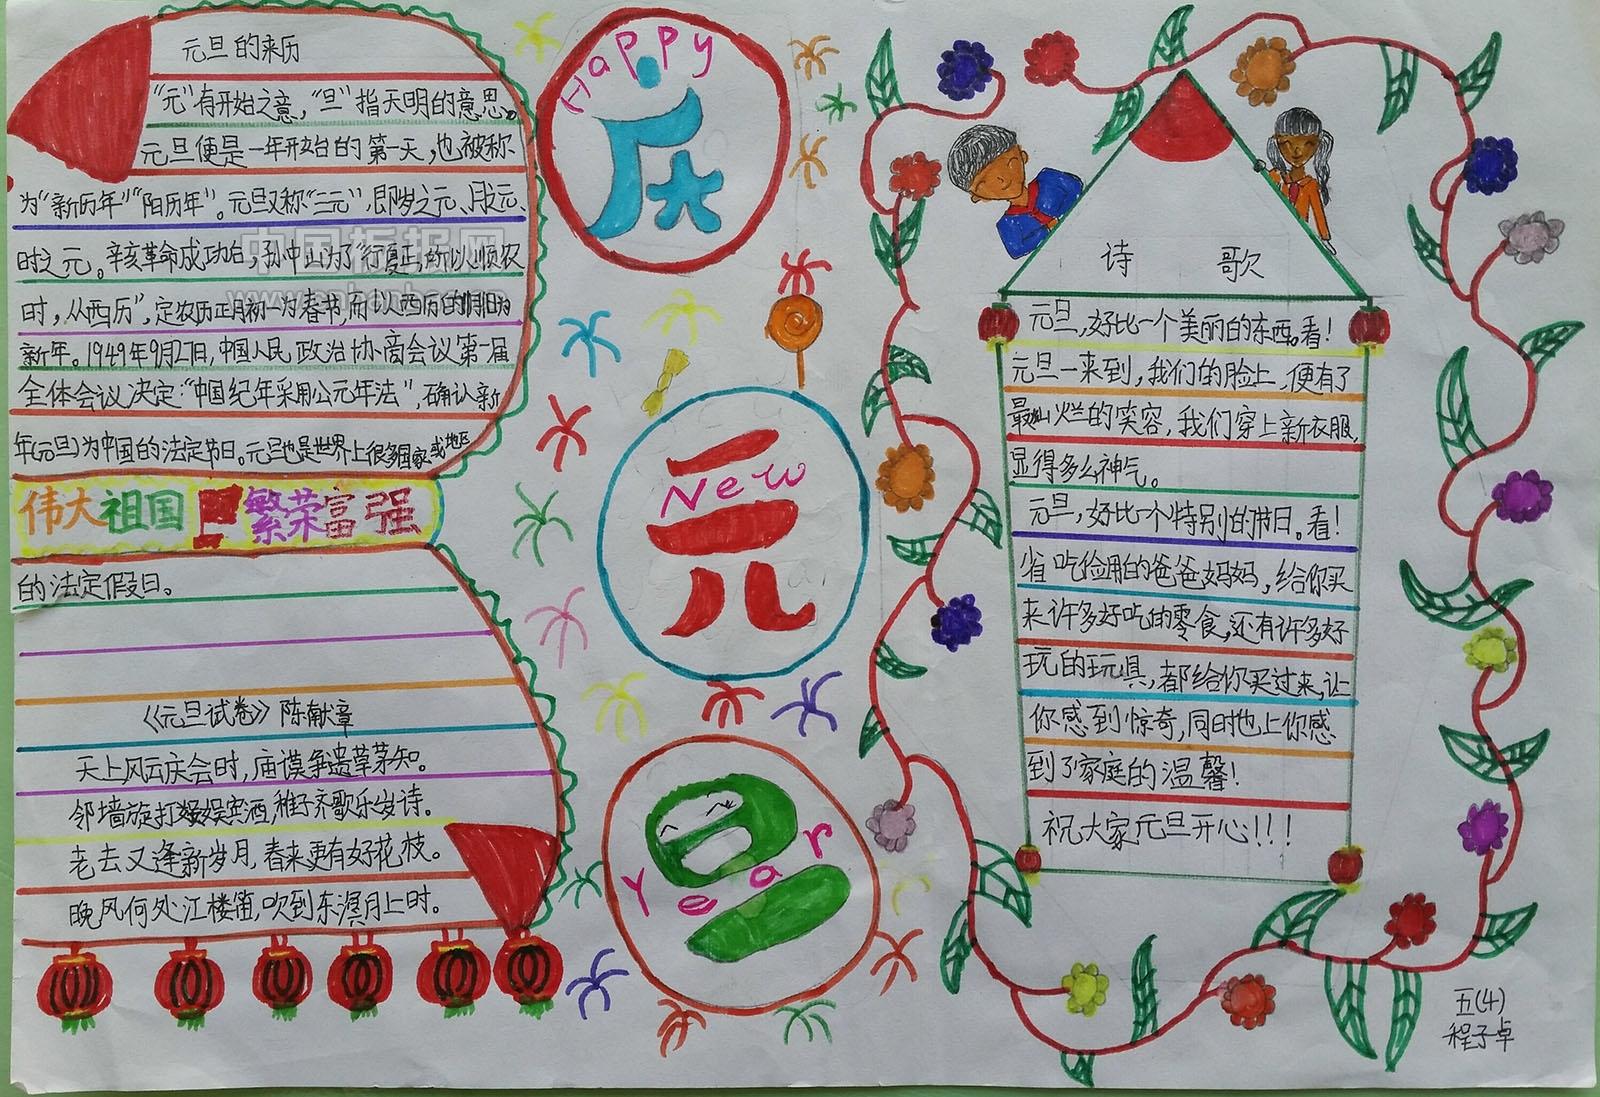 元旦的来历
"元"有开始之意，"旦"指天明的意思。
元旦便是一年开始的第一天，也被称
为"新历年""阳历年"。元旦又称"三元"，即岁之元、月之元、
时之元。辛亥革命成功后，孙中山为了"行夏正，所以顺农
时，从西历"，定农历正月初一为春节，而以西历的1月1日为
新年。1949年9月27日，中国人民政治协商会议第一届
全体会议决定："中国纪年采用公元年法"，确认新
年(元旦)为中国的法定节日。元旦也是世界上很多国家或地区
伟大祖国 繁荣富强
的法定假日。
《元旦试卷》陈献章
天上风云庆会时，庙谟争遗草茅知。
邻墙旋打娱宾酒，稚子齐歌乐岁诗。
老去又逢新岁月，春来更有好花枝。
晚风何处江楼笛，吹到东溟月上时。
Happy
庆
元
New
旦
Year
诗 歌
元旦，好比一个美丽的东西。看！
元旦一来到，我们的脸上，便有了
最灿烂的笑容，我们穿上新衣服，
显得多么神气。
元旦，好比一个特别的节日。看！
省吃俭用的爸爸妈妈，给你买
来许多好吃的零食，还有许多好
玩的玩具，都给你买过来，让
你感到惊奇，同时也上你感
到了家庭的温馨！
祝大家元旦开心！！！
五(4)
程子卓
中国板报网